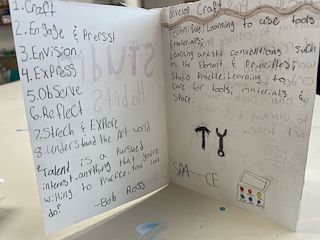 1. Craft
2. Engage & Persist
3. Envision
4. Express
5. Observe
6. Reflect
7. Strech & Explore
8. Understand the Art world
"Talent is a pursued
interest. anything that you're
willing to practice, you can
do"
-Bob Ross
Develop Craft
Technique: Learning to use tools
& materials;
Learning artistic conventions such
as the Element & Principles;
Studio Practice: Learning to
care for tools, materials &
space.
SPA CE